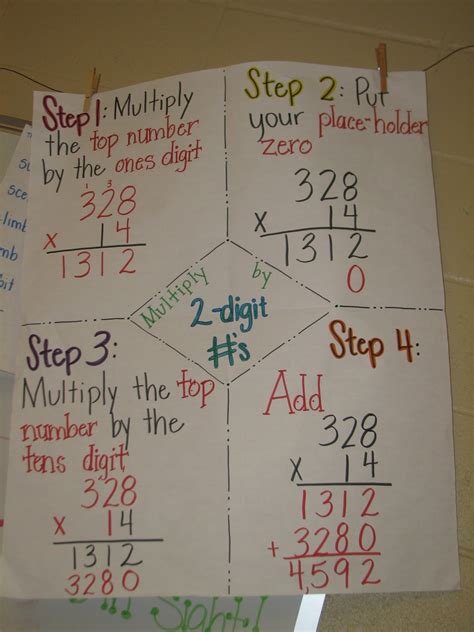 Step 1: Multiply
the top number
by the ones digit
1 3
328
x 14
1312
Step 2: Put
your place-holder
zero
328
x 14
1312
0
Multiply by
2-digit
#'s
Step 3:
Multiply the top
number by the
tens digit
328
x 14
1312
3280
Step 4:
Add
328
x 14
1312
+ 3280
4,592
Sight!